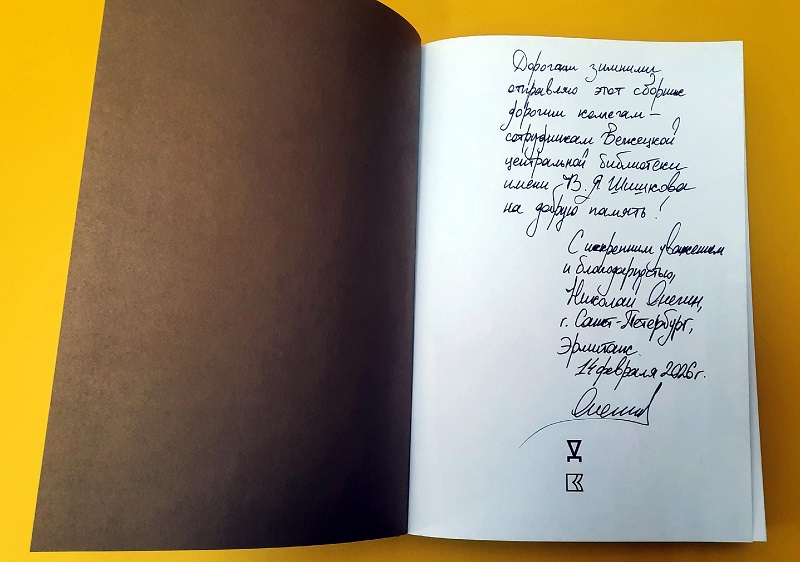 Дорогами зимними
отправляю этот сборник
дорогим коллегам –
сотрудникам Бежецкой
центральной библиотеки
имени В. Я Шишкова
на добрую память!
С искренним уважением
и благодарностью,
Николай Онегин,
г. Санкт-Петербург,
Эрмитаж.
14 февраля 2026 г.